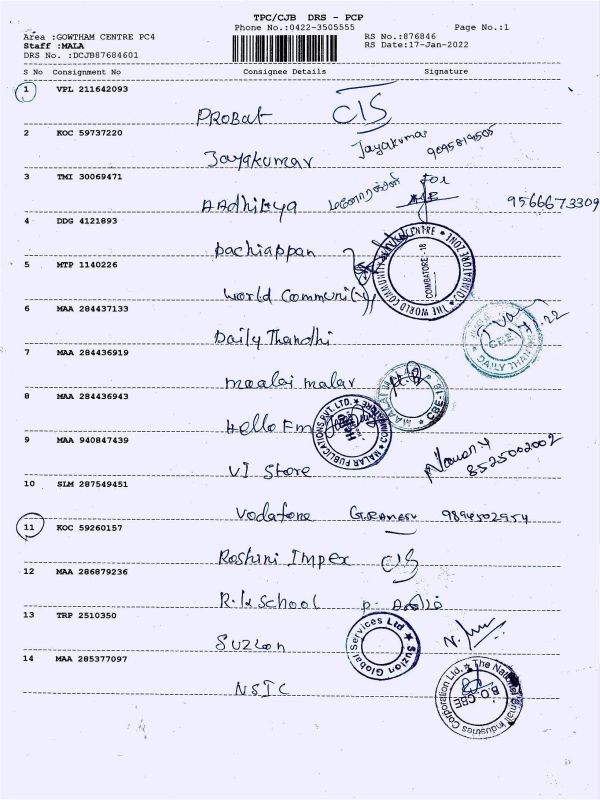 TPC/CJB DRS - PCP
Phone No.:0422-3505555
Page No.:1
Area :GOWTHAM CENTRE PC4
Staff :MALA
DRS No. :DCJB87684601
RS No.:876846
RS Date:17-Jan-2022
S No Consignment No Consignee Details Signature
1 VPL 211642093
PROBAt CIS
2 KOC 59737220
Jayakumar Jayakumar
3 TMI 30069471
AAdhitya For 9566673309
4 DDG 4121893
pachiappan
5 MTP 1140226
World Community
THE WORLD COMMUNITY CENTRE COIMBATORE - 18
6 MAA 284437133
Daily Thandhi
DAILY THANTHI CBE
7 MAA 284436919
maalai malar
MAALAI MALAR CBE-18
8 MAA 284436943
Hello Fm
MALAR PUBLICATIONS PVT. LTD. COIMBATORE
9 MAA 940847439
VI Store 8525002002
10 SLM 287549451
Vodafone
11 KOC 59260157
Roshini Impex CIS
12 MAA 286879236
R.K School
13 TRP 2510350
Suzlon
Suzlon Global Services Ltd
14 MAA 285377097
NSIC
The National Small Industries Corporation Ltd.
B.O-CBE